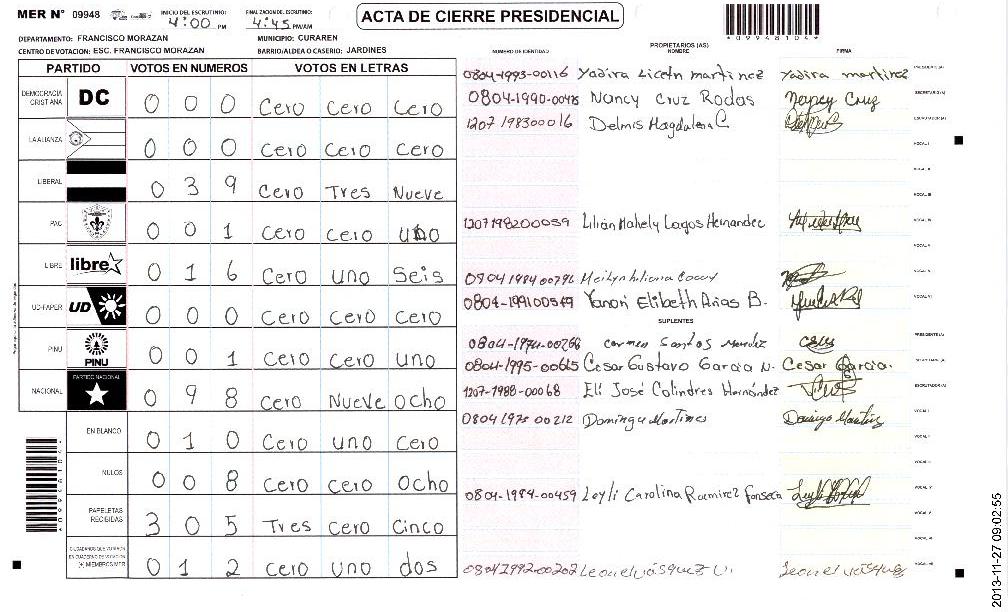 MER N° 09948 INICIO DEL ESCRUTINIO: 4:00 PM FINALIZACION DEL ESCRUTINIO: 4:45 PM/AM
ACTA DE CIERRE PRESIDENCIAL
09948104
DEPARTAMENTO: FRANCISCO MORAZAN MUNICIPIO: CURAREN
CENTRO DE VOTACION: ESC. FRANCISCO MORAZAN BARRIO/ALDEA O CASERIO: JARDINES
PARTIDO VOTOS EN NUMEROS VOTOS EN LETRAS
DEMOCRACIA CRISTIANA DC 0 0 0 Cero Cero Cero
LA ALIANZA 0 0 0 Cero Cero Cero
LIBERAL 0 3 9 Cero Tres Nueve
PAC 0 0 1 Cero Cero uno
LIBRE libre 0 1 6 Cero uno Seis
UD-FAPER UD 0 0 0 Cero Cero Cero
PINU PINU 0 0 1 Cero Cero uno
NACIONAL PARTIDO NACIONAL 0 9 8 Cero Nueve Ocho
EN BLANCO 0 1 0 Cero uno Cero
NULOS 0 0 8 Cero Cero Ocho
PAPELETAS RECIBIDAS 3 0 5 Tres Cero Cinco
CIUDADANOS QUE VOTARON EN CUADERNO DE VOTACION (+) MIEMBROS MER 0 1 2 Cero uno dos
NUMERO DE IDENTIDAD PROPIETARIOS (AS) NOMBRE FIRMA
0804-1993-00116 Yadira Liceth martinez Yadira martinez PRESIDENTE(A)
0804-1990-00475 Nancy Cruz Rodas Nancy Cruz SECRETARIO(A)
1207 198300016 Delmis Magdalena C. ESCRUTADOR(A)
VOCAL I
VOCAL II
VOCAL III
1207198200059 Lilian Mahely Lagos Hernandez VOCAL IV
VOCAL V
0804 1984 00796
0804-199100549 Yanori Elibeth Arias B. VOCAL VI
SUPLENTES
0804-1974-00266 Carmen Santos Mendez PRESIDENTE(A)
0804-1995-00665 Cesar Gustavo Garcia N. Cesar Garcia. SECRETARIO(A)
1207-1988-00068 Elí José Colindres Hernández ESCRUTADOR(A)
0804 1975 00212 Domingo Martines Domingo Martinez VOCAL I
VOCAL II
VOCAL III
0804-1984-00459 Leyli Carolina Ramirez Fonseca VOCAL IV
VOCAL V
VOCAL VI
0804 1992-00202 Leonel vásquez V. Leonel vásquez VOCAL VII
2013-11-27 09:02:55